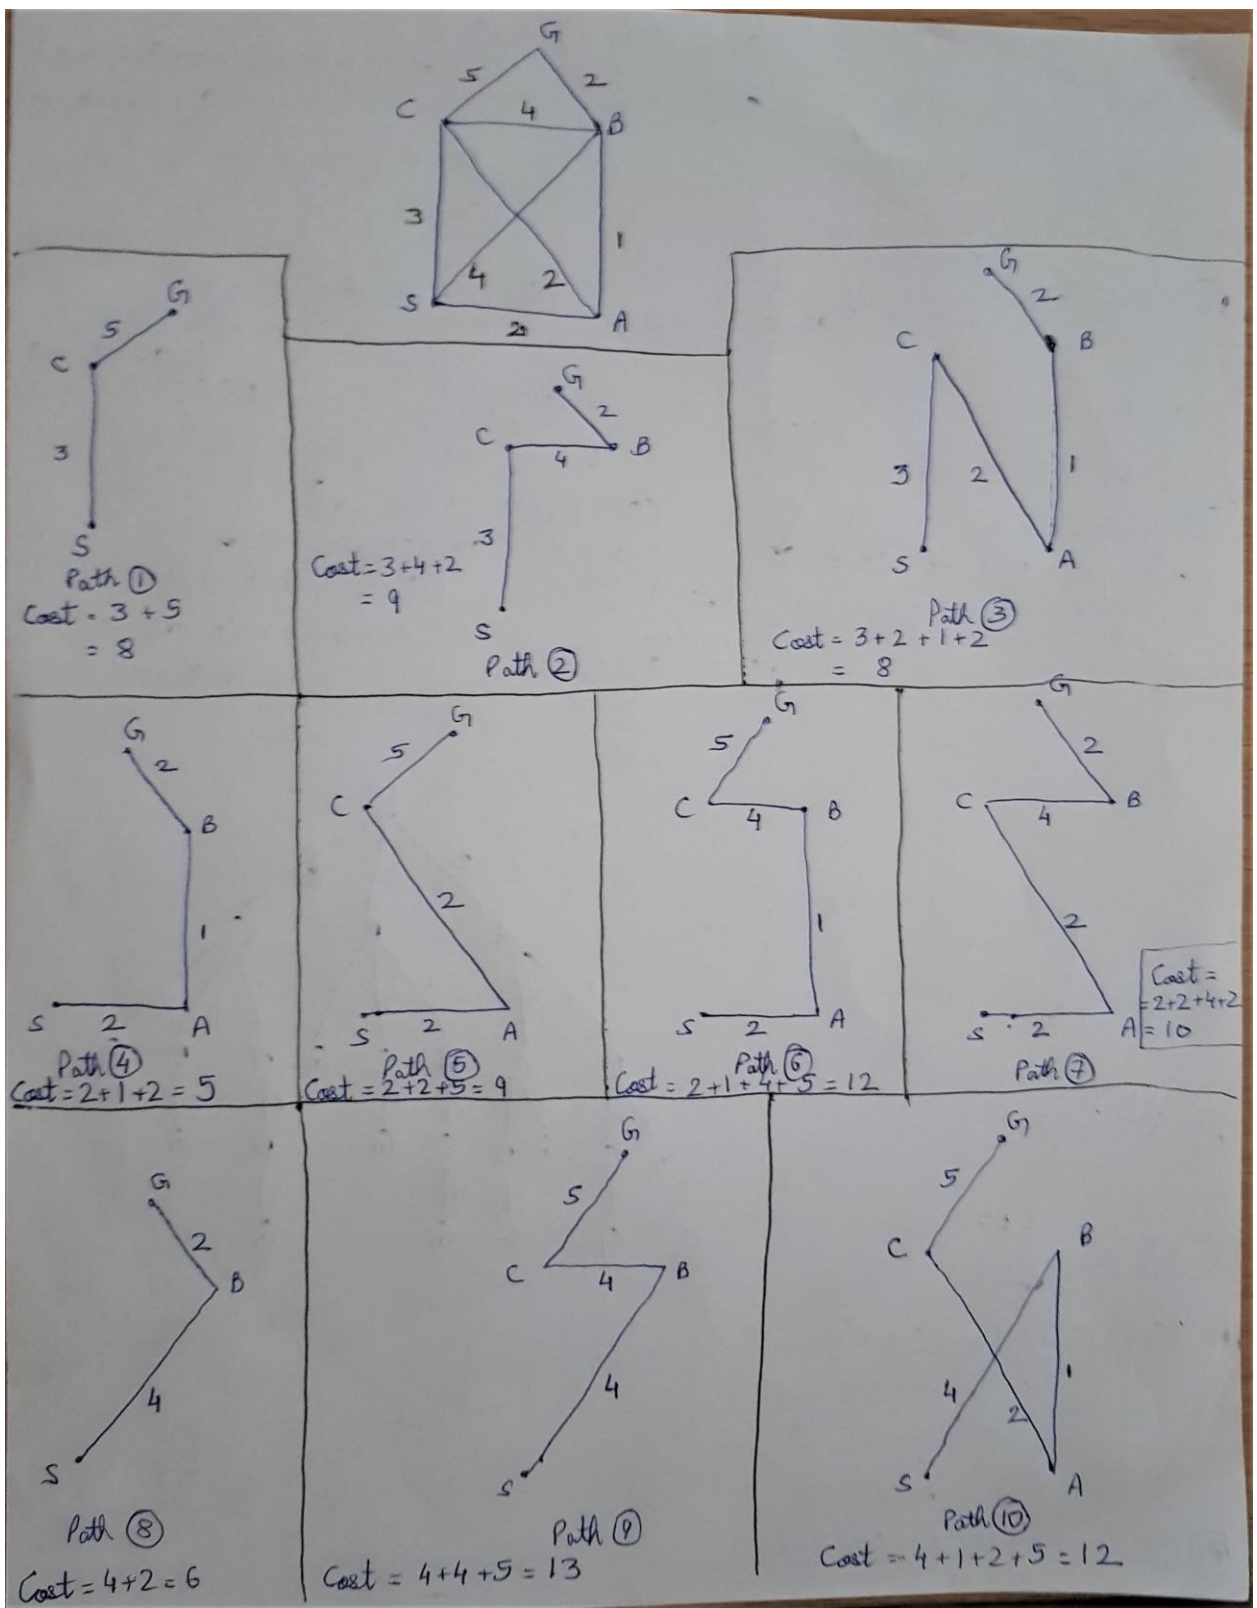 G
5
2
C
4
B
3
1
4
2
S
2
A
G
5
C
3
S
Path ①
Cost = 3 + 5
= 8
G
2
C
4
B
3
Cost = 3+4+2
= 9
S
Path ②
G
2
C
B
3
2
1
S
A
Path ③
Cost = 3+2+1+2
= 8
G
2
B
1
S
2
A
Path ④
Cost = 2+1+2 = 5
G
5
C
2
S
2
A
Path ⑤
Cost = 2+2+5 = 9
G
5
C
4
B
1
S
2
A
Path ⑥
Cost = 2+1+4+5 = 12
G
2
C
4
B
2
S
2
A
Cost =
=2+2+4+2
= 10
Path ⑦
G
2
B
4
S
Path ⑧
Cost = 4+2 = 6
G
5
C
4
B
4
S
Path ⑨
Cost = 4+4+5 = 13
G
5
C
B
4
2
1
S
A
Path ⑩
Cost = 4+1+2+5 = 12